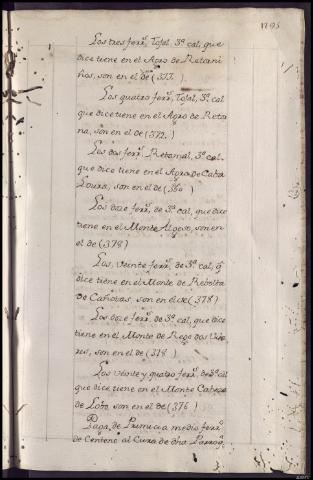 1295
Los tres ferr.s Tojal, 3.a cal, que
dice tiene en el Agro de Retorni
ños, son en el de (377.)
Los quatro ferr.s Tojal, 3.a cal
que dice tiene en el Agro de Reto
na, son en el de (372.)
Los dos ferr.s Retamal, 3.a cal.
que dice tiene en el Agra de Caba
Loura, son en el de (360)
Los doze ferr.s de 3.a cal, que dice
tiene en el Monte Algeso, son en
el de (378)
Los, veinte ferr.s de 3.a cal, q.
dice tiene en el Monte de Rebolta
de Canobas, son en el de (378)
Los doze ferr.s de 3.a cal, que dice
tiene en el Monte de Rego dos Viña
res, son en el de (378)
Los veinte y quatro ferr.s de 3.a cal
que dice tiene en el Monte Cabeza
de Lobo, son en el de (376)
Paga de Primicia medio ferr.
de Centeno al Cura de dha Parroq.